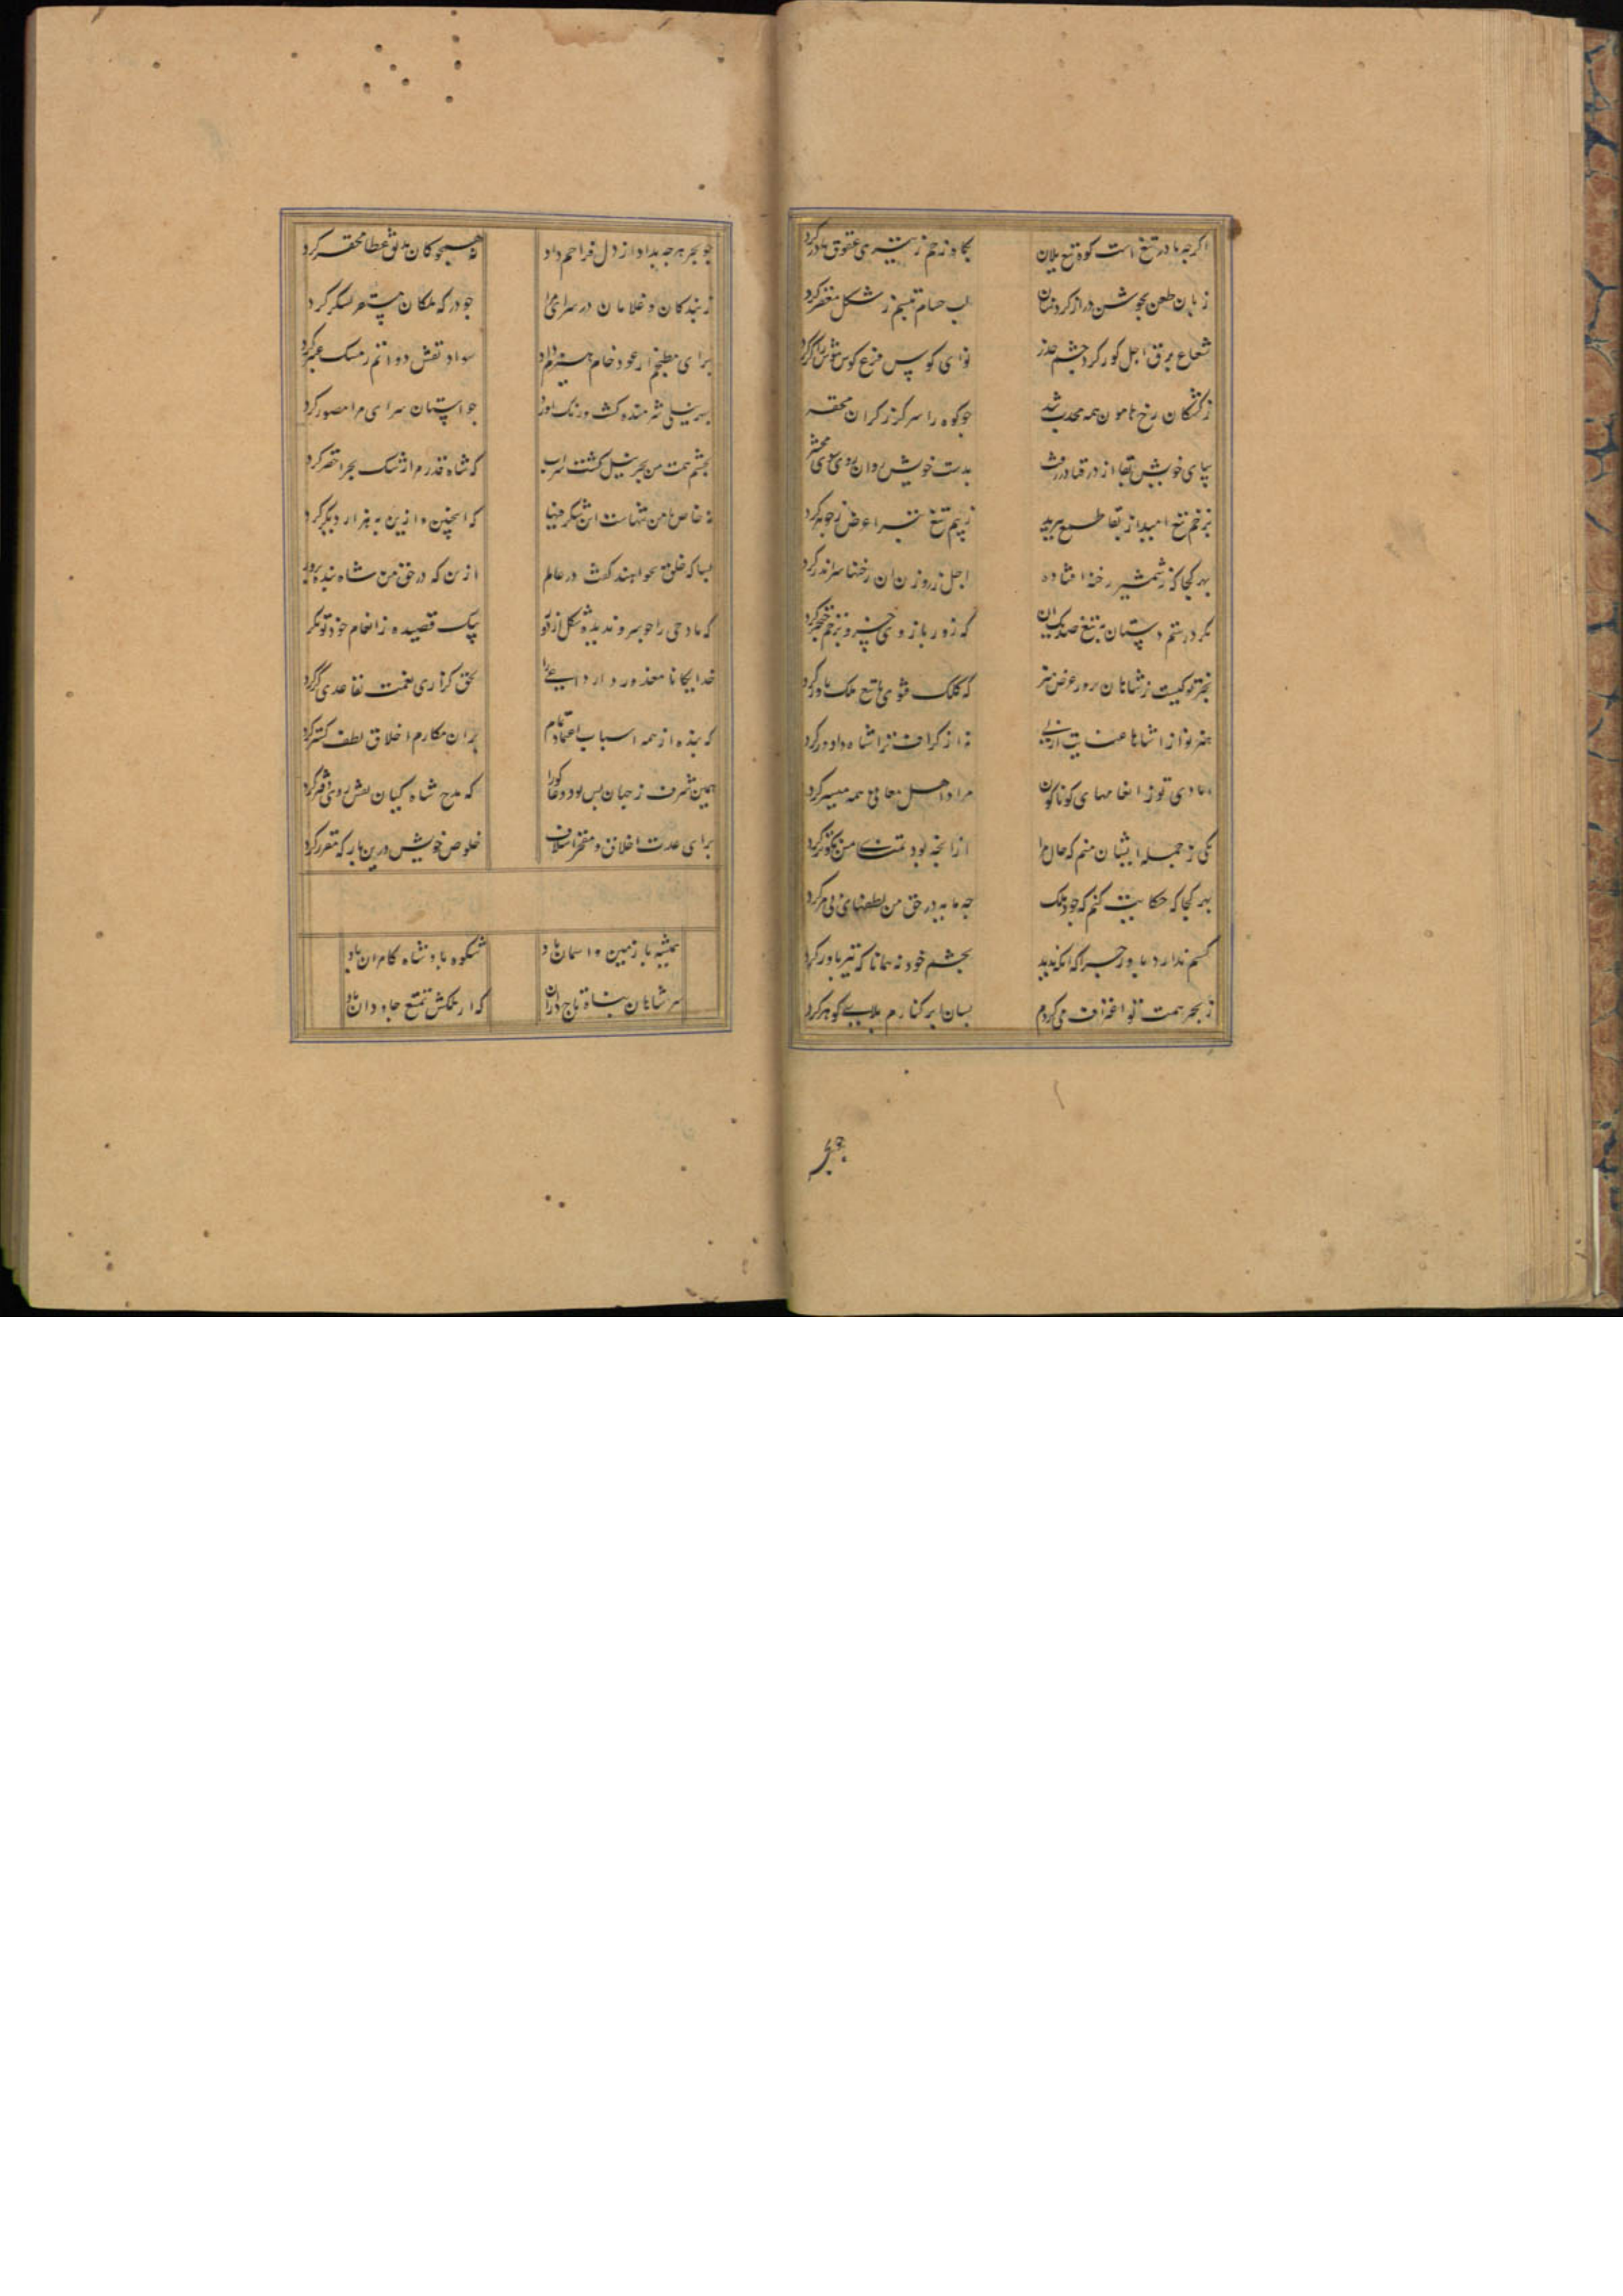 اکرچه مادر تیغ است کوه تیغ یلان کجا ز رحم ز تیزی عقوق مادر کرد
زبان طعن بجوشن دراز کرد سنان لب حسام تبسم ز شکل مغفر کرد
شعاع برق اجل کور کرد چشم حذر نوای کوس فزع کوش هوش را کر کرد
ز کشتکان رخ هامون همه محدب شد چو کوه را سر کرز کران مقعر
بپای خویش بقا از در فنا در رفت بدست خویش روان روی سوی محشر
بزخم تیغ امید از بقا طمع ببرید ز بیم تیغ تبرا عرض ز جوهر کرد
بهر کجا که ز شمشیر رخنه افتاده اجل ز روزن ان رخنها سر اندر کرد
نکرد رستم دستان به تیغ صد یک ان که زور بازوی خسرو بزخم خنجر کرد
بجز تو کیست ز شاهان بروز عرض هنر که کلک فتوی ده تیغ ملک یاور کرد
هنر نوازا شاها عنایت ازلی نه از کزاف ترا شاه داد ور کرد
ایادی تو ز انعامهای کوناکون مراد اهل معانی همه میسر کرد
یکی ز جمله ایشان منم که حال مرا از انچه بود تمنای من نکوتر کرد
بهر کجا که حکایت کنم که جود ملک چه مایه در حق من لطفهای بی مر کرد
کسم ندارد باور چرا که انکه ندید بچشم خود نه همانا که نیز باور کرد
ز بحر همت تو اغتراف می کردم بسان ابر کنارم پر اب کوهر کرد
چو بحر
چو بحر هرچه بداد از دل فراخم داد نه همچو کان عطا محقر کرد
ز بندکان و غلامان در سرای مرا چو درکه ملکان لشکر کرد
برای مطبخم از عود خام هیزم داد سواد نقش دواتم ز مشک عنبر کرد
چو استان سرای مرا مصور کرد
بچشم همت من بحر نیل کشت سراب که شاه قدرم از
نه خاصه من تنهاست این شکر که اینچنین و ازین به هزار دیکر کرد
بسا که خلق بخواهند کفت در عالم ازین که در حق من شاه بنده پرور
که مادحی را خسرو ندیده شکل از تو بیک قصیده ز انعام خود توانکر
خدایکانا معذور دار داعی را بحق کزاری نعمت تقاعدی کر کرد
که بنده از همه اسباب اعتماد تمام بر ان مکارم اخلاق لطف کستر کرد
همین شرف ز جهان بس بود دعاکو را که مدح شاه کیان نقش روی دفتر کرد
برای عدت اخلاف و مفخر اسلاف خلوص خویش درین بارکه مقرر کرد
همیشه تا زمین و اسمان باد شکوه باد شاه کامران باد
سر شاهان پناه تاج داران که از ملکش تمتع جاودان باد